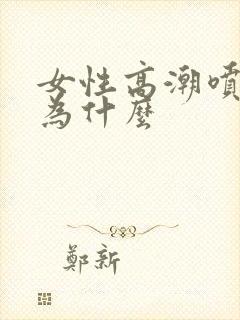 女性高潮噴
為什麼
鄭新